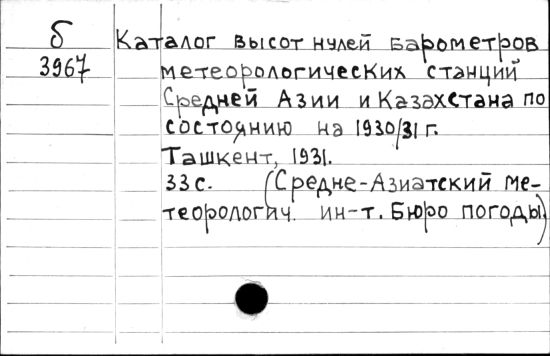 б Каталог высот нулей барометров
3967 метеорологических станций
Средней Азии и Казахстана по
состоянию на 1930/31 г.
Ташкент, 1931.
33 с. (Средне-Азиатский ме-
теорологич. ин-т. Бюро погоды)